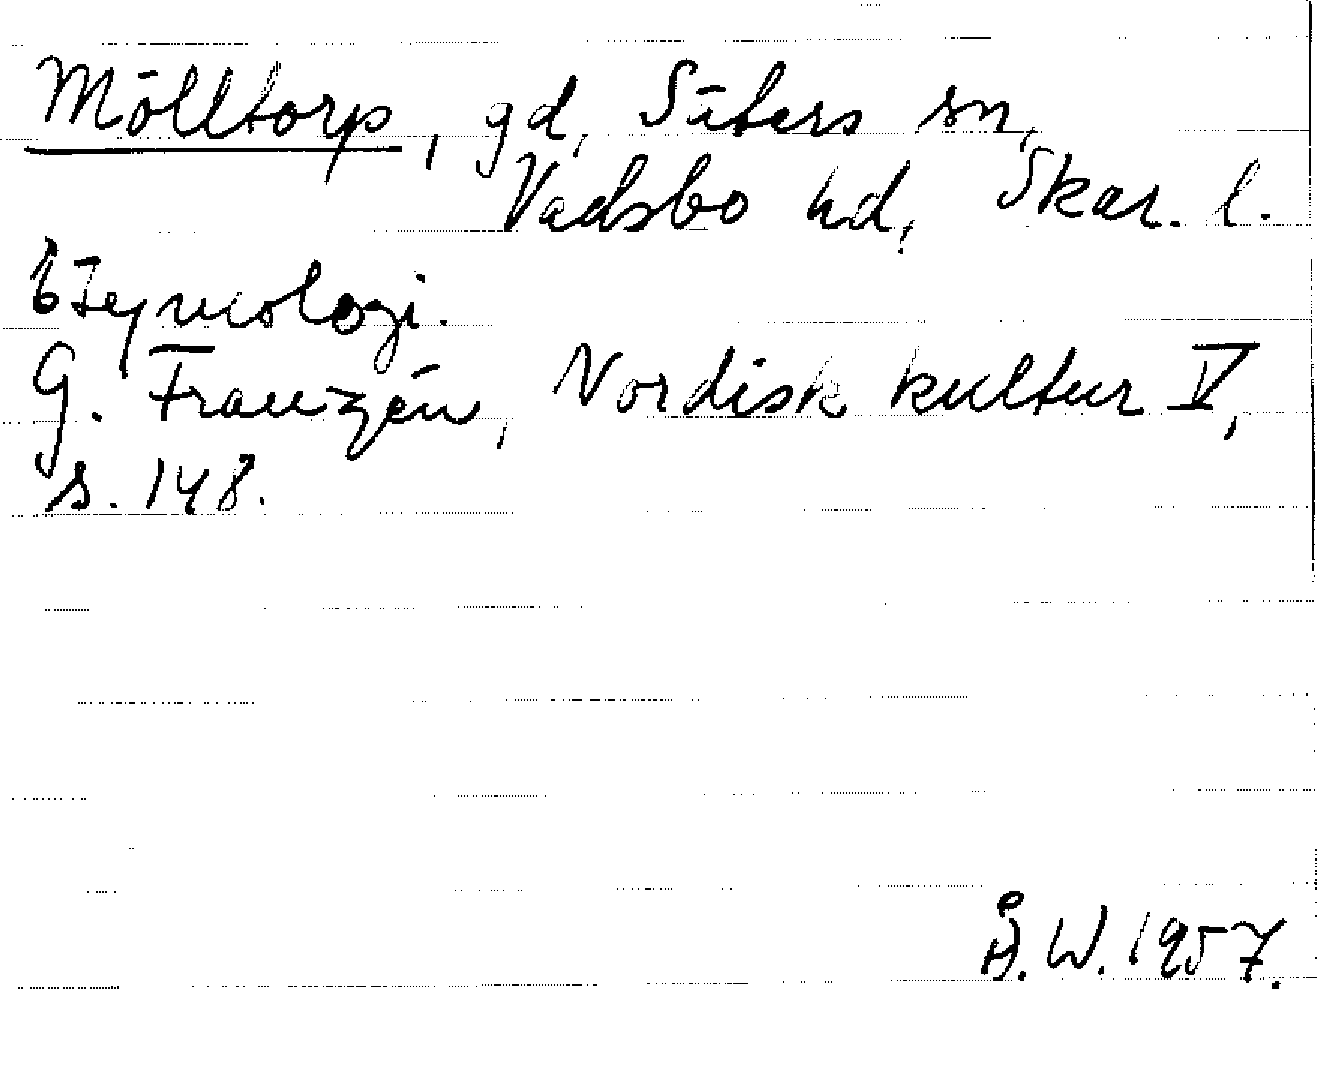 Mölltorp, gd, Säters sn,
Vadsbo hd, Skar. l.
Etymologi.
G. Franzén, Nordisk kultur V,
s. 148.
Å. W. 1957.